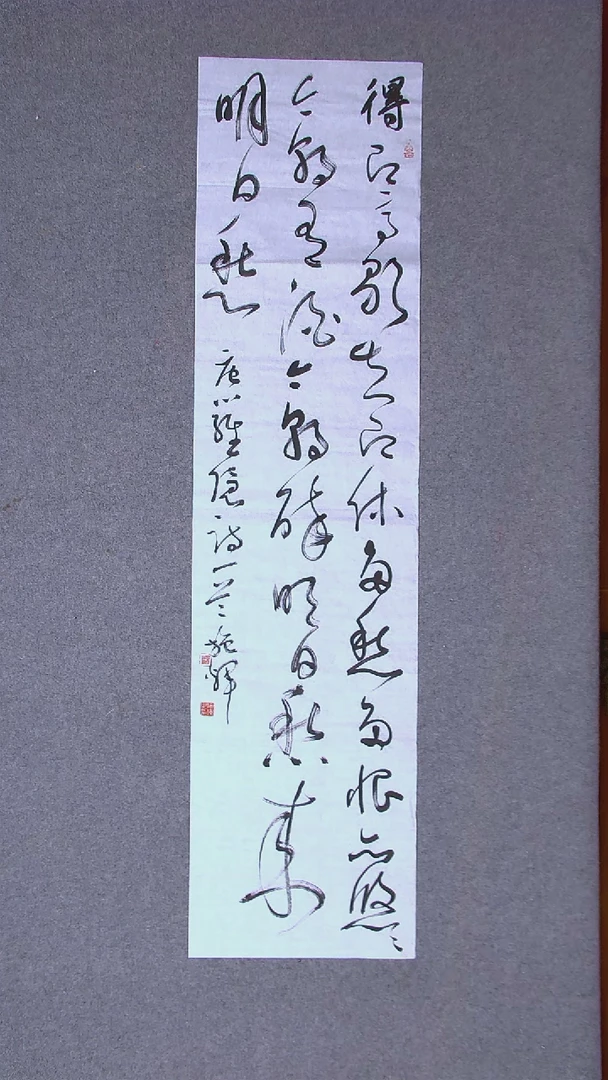 得即高歌失即休多愁多恨亦悠〻
今朝有酒今朝醉明日愁来
明日愁 唐羅隐詩一首